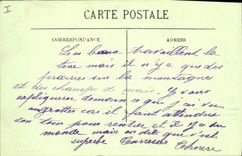 I
CARTE POSTALE
CORRESPONDANCE
ADRESSE
Les travaillent la
terre mais il n'y a que des
pierres sur la montagnes
et des champs de maïs. Je vous
expliquerai demain ce que j'ai vu
car il faut attendre
son tour pour rentrer et il y a du
monde mais on dit que c'est
superbe